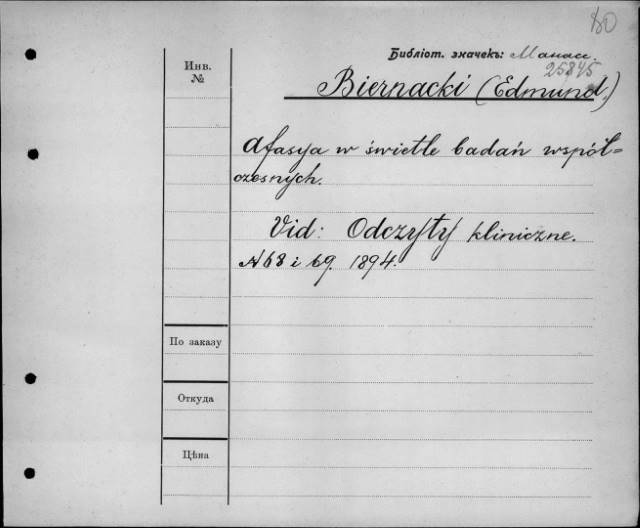 80
Библіот. значекъ: Манасс.
25845
Инв.
№
Biernacki (Edmund.)
Afasya w świetle badań współ=
czesnych.
Vid: Odczyty kliniczne.
№ 68 i 69. 1894.
По заказу
Откуда
Цѣна